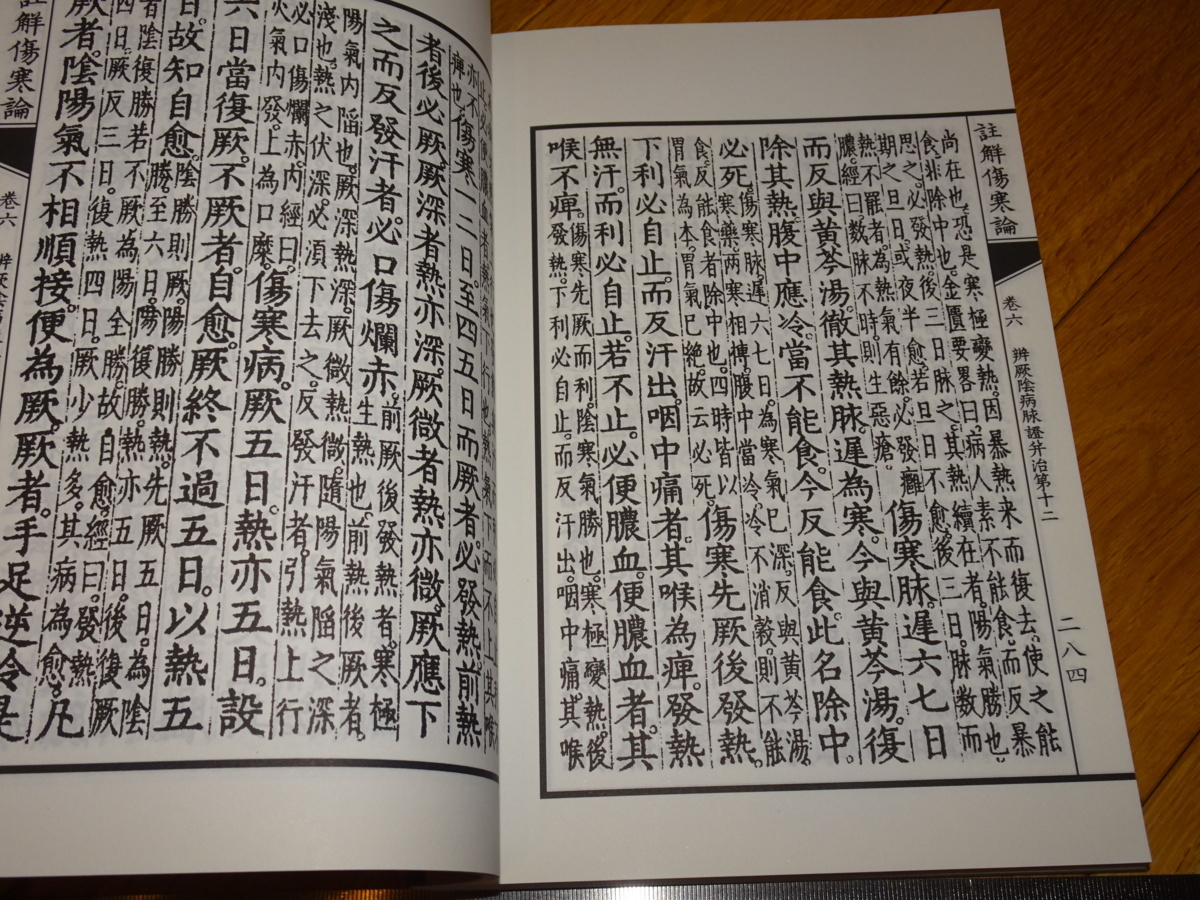 註解傷寒論
卷六　辨厥陰病脉證并治第十二
二八四
尚在也。恐是寒極變熱。因暴熱来而復去。使之能
食。非除中也。金匱要畧曰。病人素不能食。而反暴
思之。必發熱。後三日脉之。其熱續在者。陽氣勝也。
期之旦日。或夜半愈。若旦日不愈。後三日脉数而
熱不罷者。為熱氣有餘。必發癰
膿。經曰。数脉不時。則生惡瘡。
傷寒脉。遲六七日
而反與黄芩湯。徹其熱。脉遲為寒。今與黄芩湯。復
除其熱。腹中應冷。當不能食。今反能食。此名除中。
必死。
傷寒脉遲六七日。為寒氣已深。反與黄芩湯
寒藥。两寒相搏。腹中當冷。冷不消穀。則不能
食。反能食者。除中也。四時皆以
胃氣為本。胃氣已絶。故云必死。
傷寒先厥後發熱。
下利必自止。而反汗出。咽中痛者。其喉為痺。發熱
無汗。而利必自止。若不止。必便膿血。便膿血者。其
喉不痺。
傷寒先厥而利。陰寒氣勝也。寒極變熱。後
發熱。下利必自止。而反汗出。咽中痛。其喉
亦不
痺也。
傷寒一二日至四五日而厥者。必發熱。前熱
者後必厥。厥深者熱亦深。厥微者熱亦微。厥應下
之而反發汗者。必口傷爛赤。
前厥後發熱者。寒極
生熱也。前熱後厥者。
陽氣内陷也。厥深熱深。厥微熱微。隨陽氣陷之深
淺也。熱之伏深。必須下去之。反發汗者。引熱上行
必口傷爛赤。内經曰。
火氣内發。上為口糜。
傷寒病。厥五日。熱亦五日。設
六日當復厥。不厥者。自愈。厥終不過五日。以熱五
日。故知自愈。
陰勝則厥。陽勝則熱。先厥五日。為陰
勝。至六日。陽復勝。熱亦五日。後復厥
者。陰復勝。若不厥。為陽全勝。故自愈。經曰。發熱
四日。厥反三日。復熱四日。厥少熱多。其病為愈。
凡
厥者。陰陽氣不相順接。便為厥。厥者。手足逆冷是
註解傷寒論
卷六